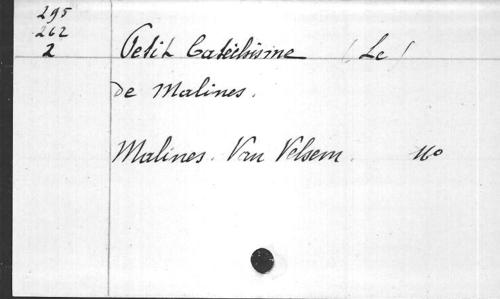 295
262
2
Petit Catéchisme (Le)
de Malines.
Malines. Van Velsem.